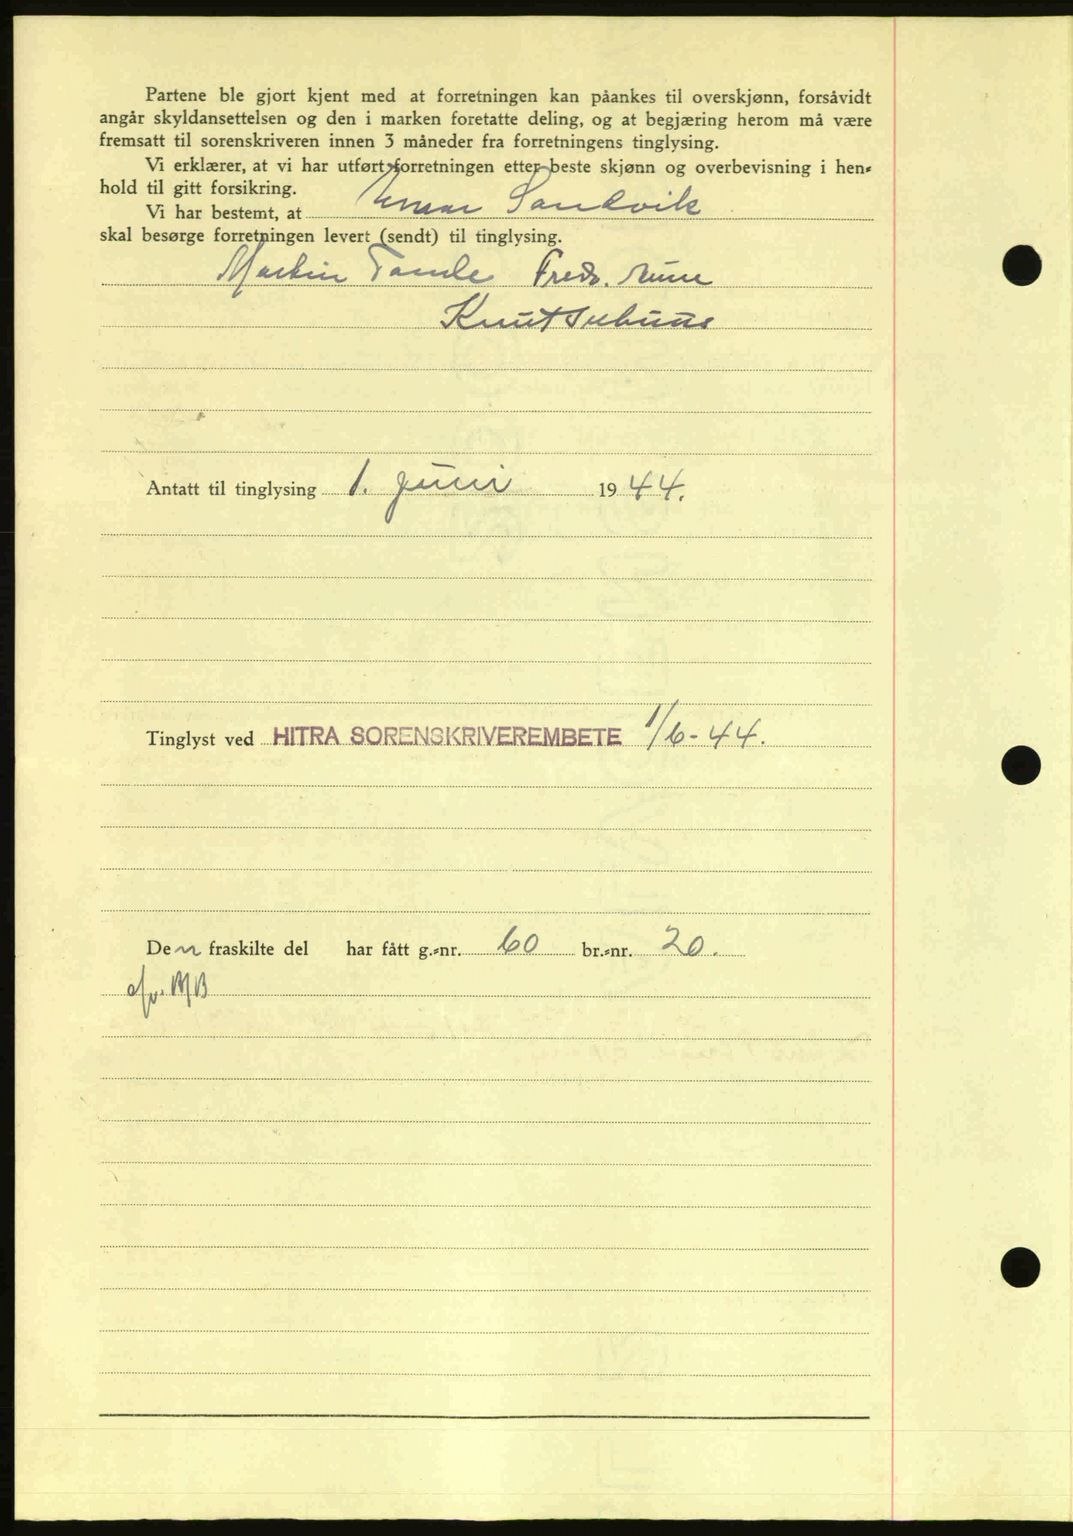 Partene ble gjort kjent med at forretningen kan påankes til overskjønn, forsåvidt
angår skyldansettelsen og den i marken foretatte deling, og at begjæring herom må være
fremsatt til sorenskriveren innen 3 måneder fra forretningens tinglysing.
Vi erklærer, at vi har utført forretningen etter beste skjønn og overbevisning i hen-
hold til gitt forsikring.
Vi har bestemt, at Sandvik
skal besørge forretningen levert (sendt) til tinglysing.
Martin Fredr.
Knut
Antatt til tinglysing 1. juni 1944.
Tinglyst ved HITRA SORENSKRIVEREMBETE 1/6-44.
Den fraskilte del har fått g.-nr. 60 br.-nr. 20.
MB